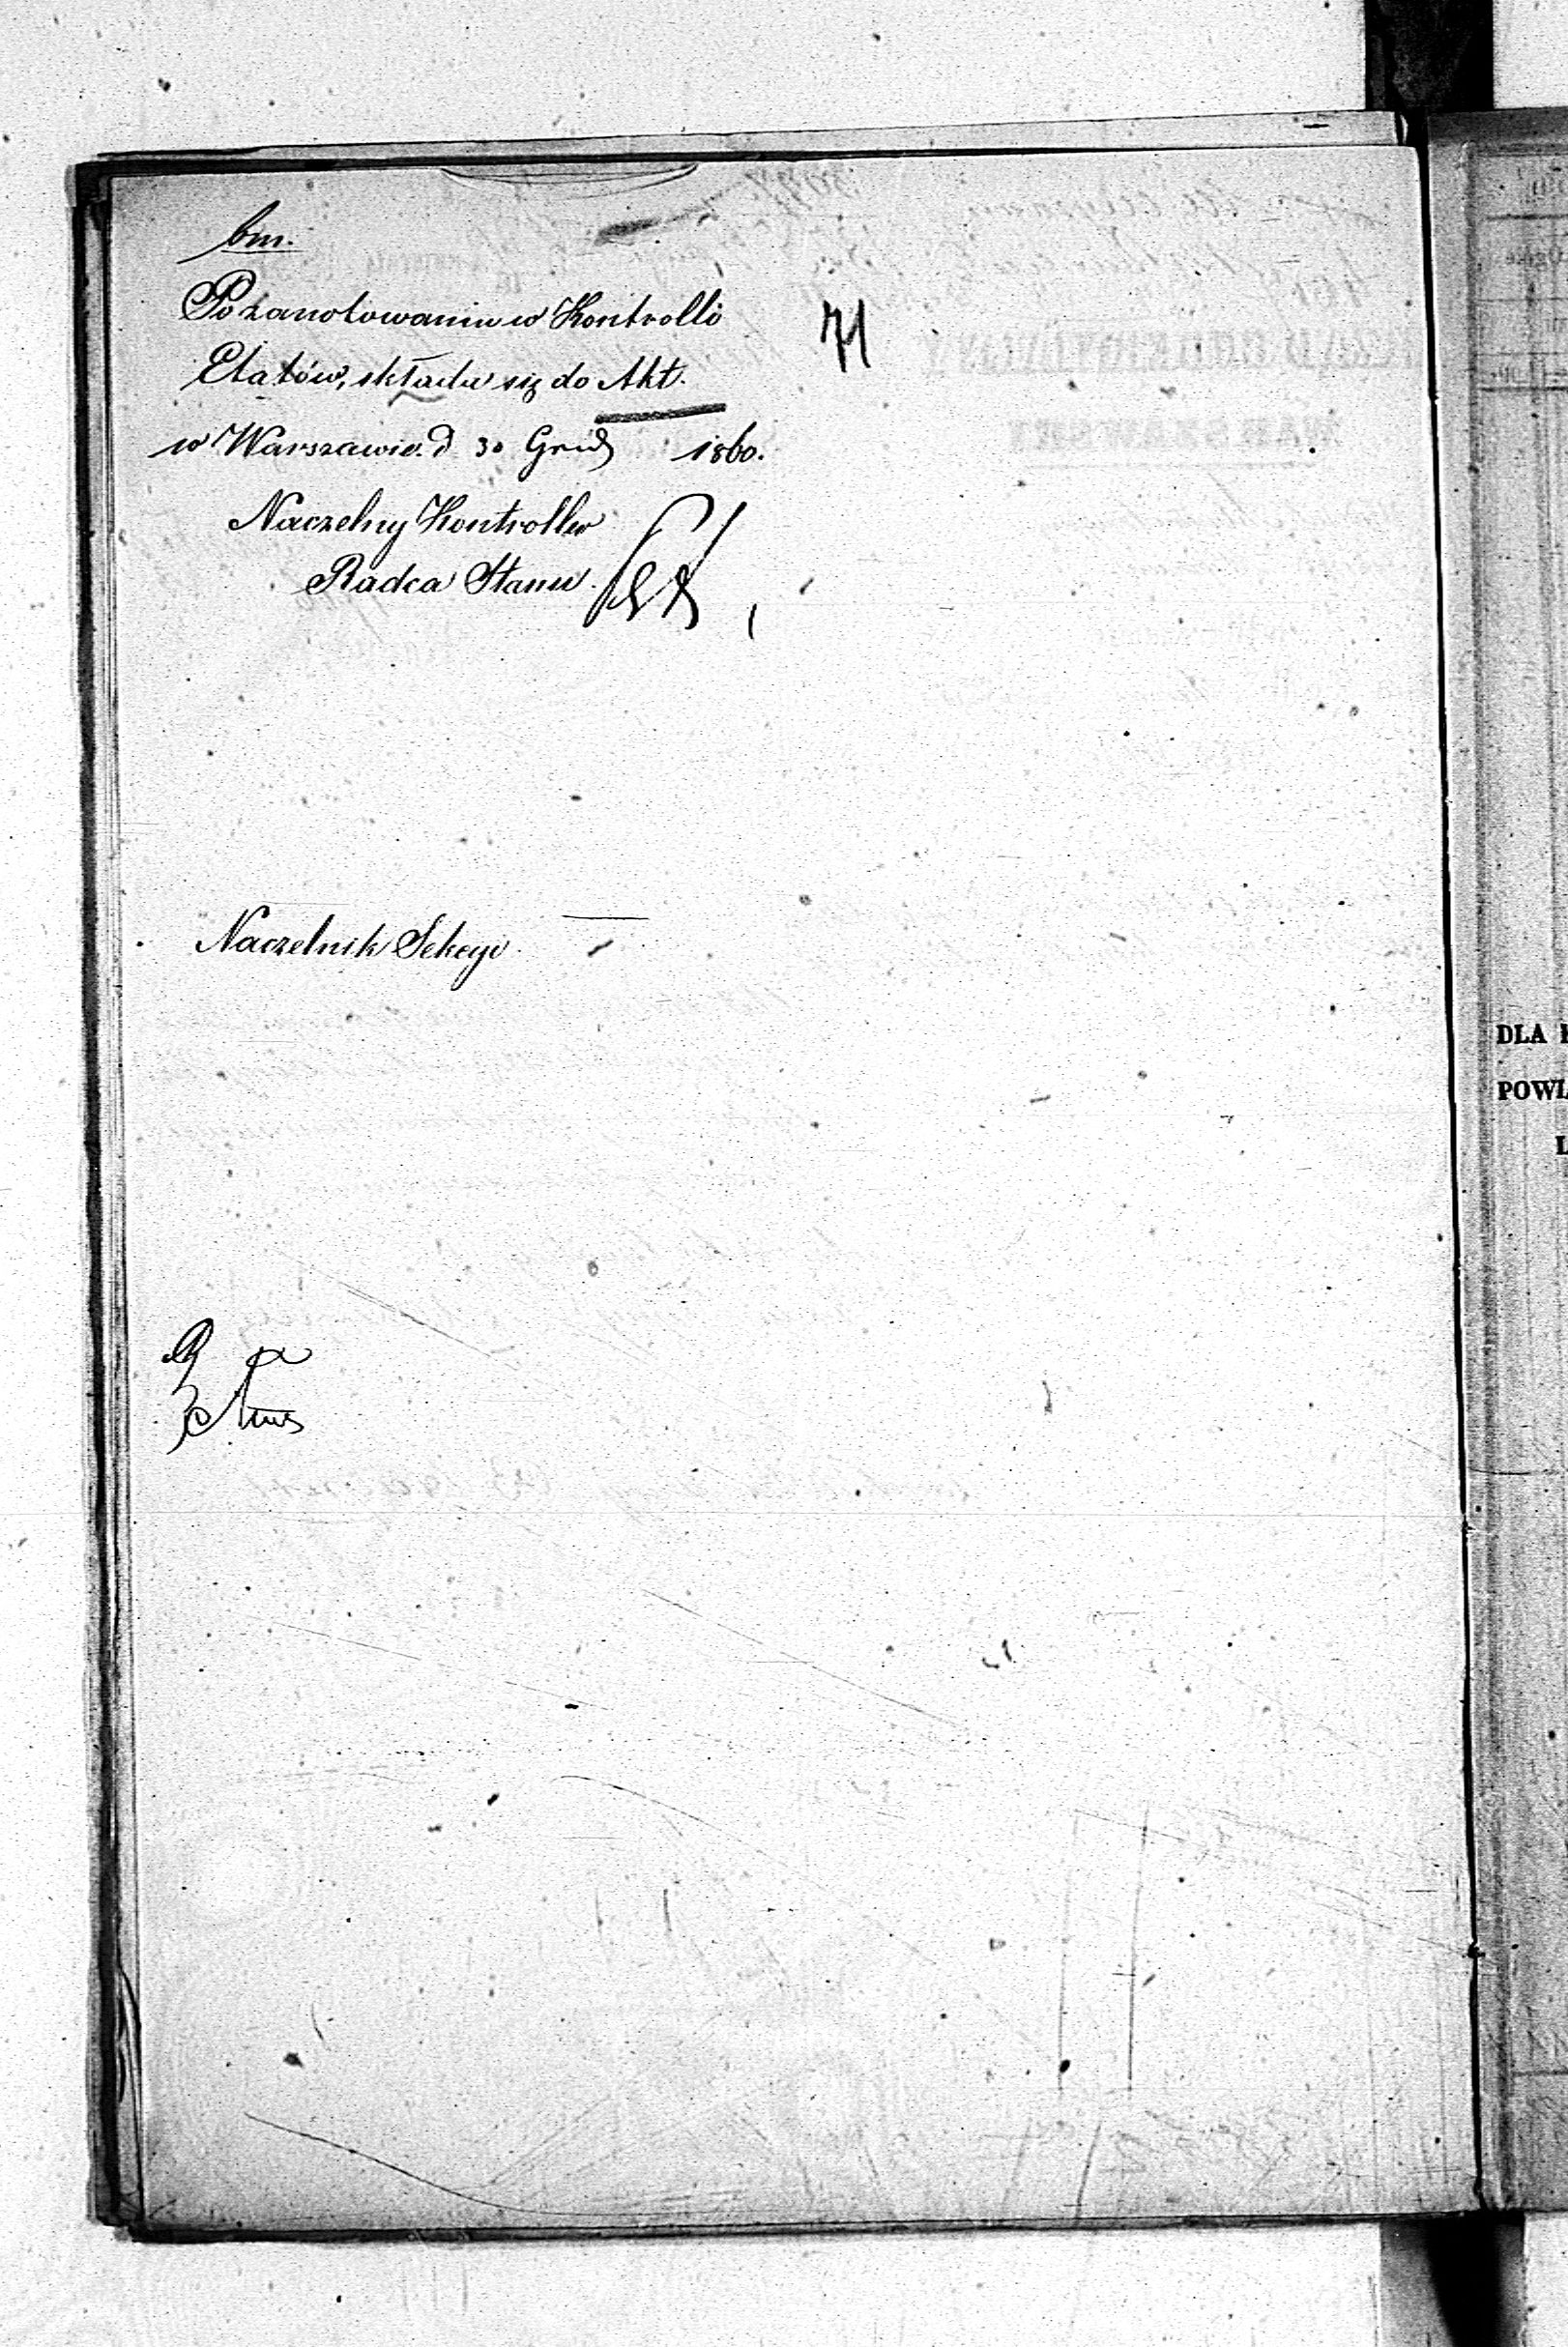 bm.
Po zanotowaniu w Kontrolli
71
Etatów, składa się do Akt.
w Warszawie d 30 Grud 1860.
Naczelny Kontroller
Radca Stanu
Naczelnik Sekcyi
DLA
POWI